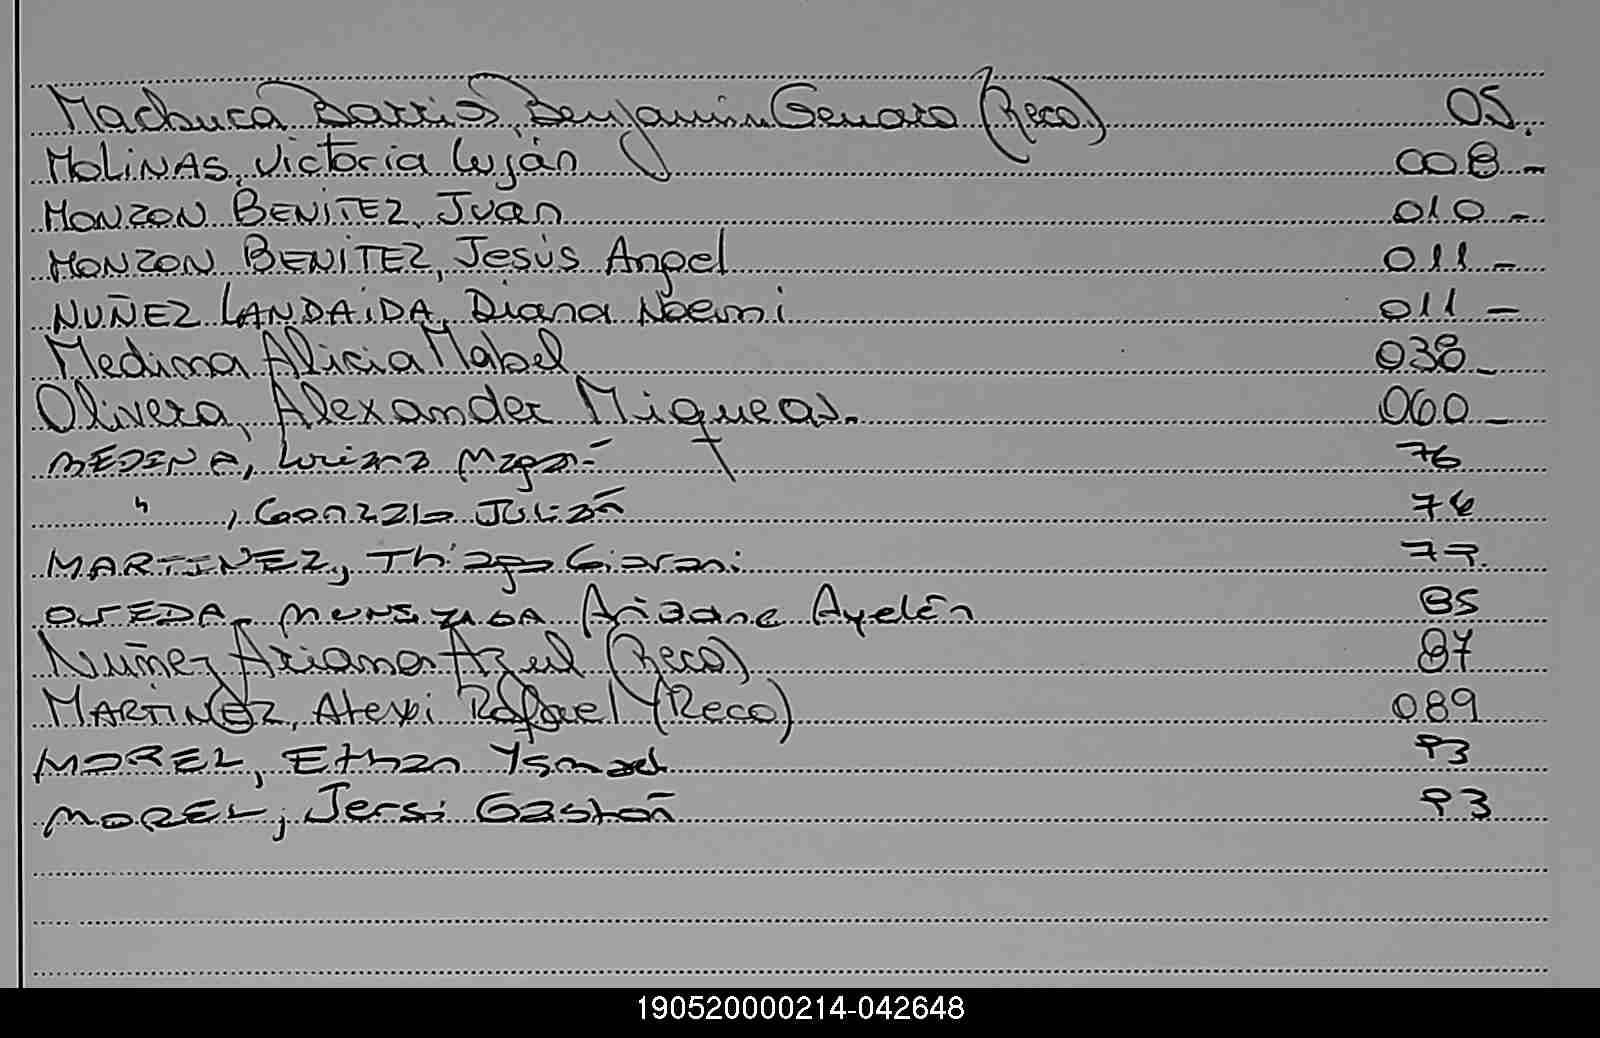 Machuca Barrios, Benjamin Genaro (Reco) 05.
MOLINAS, Victoria Luján 008 -
MONZON BENITEZ, Juan 010 -
MONZON BENITEZ, Jesús Angel 011 -
NUÑEZ LANDAIDA, Diana Noemi 011 -
Medina Alicia Mabel 038 -
Olivera, Alexander Miqueas. 060 -
MEDINA, Luciana Magalí 76
" , Gonzalo Julián 76
MARTINEZ, Thiago Giovani 77.
OJEDA Ariadne Ayelén 85
Nuñez Ariana Azul (Reco) 87
MARTINEZ, Alexi Rafael (Reco) 089
MOREL, Ethan Ysmael 93
MOREL, Jersi Gastón 93
190520000214-042648